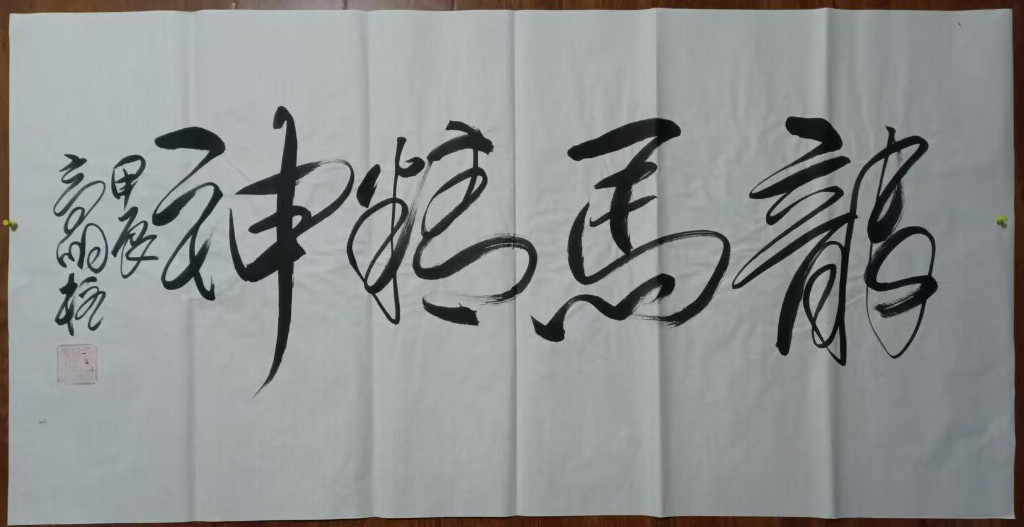 龍馬精神
甲辰
高